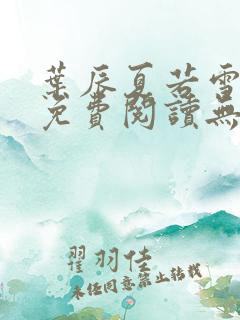 葉辰夏若雪
免費閱讀無
翟羽佳
未經同意禁止轉載